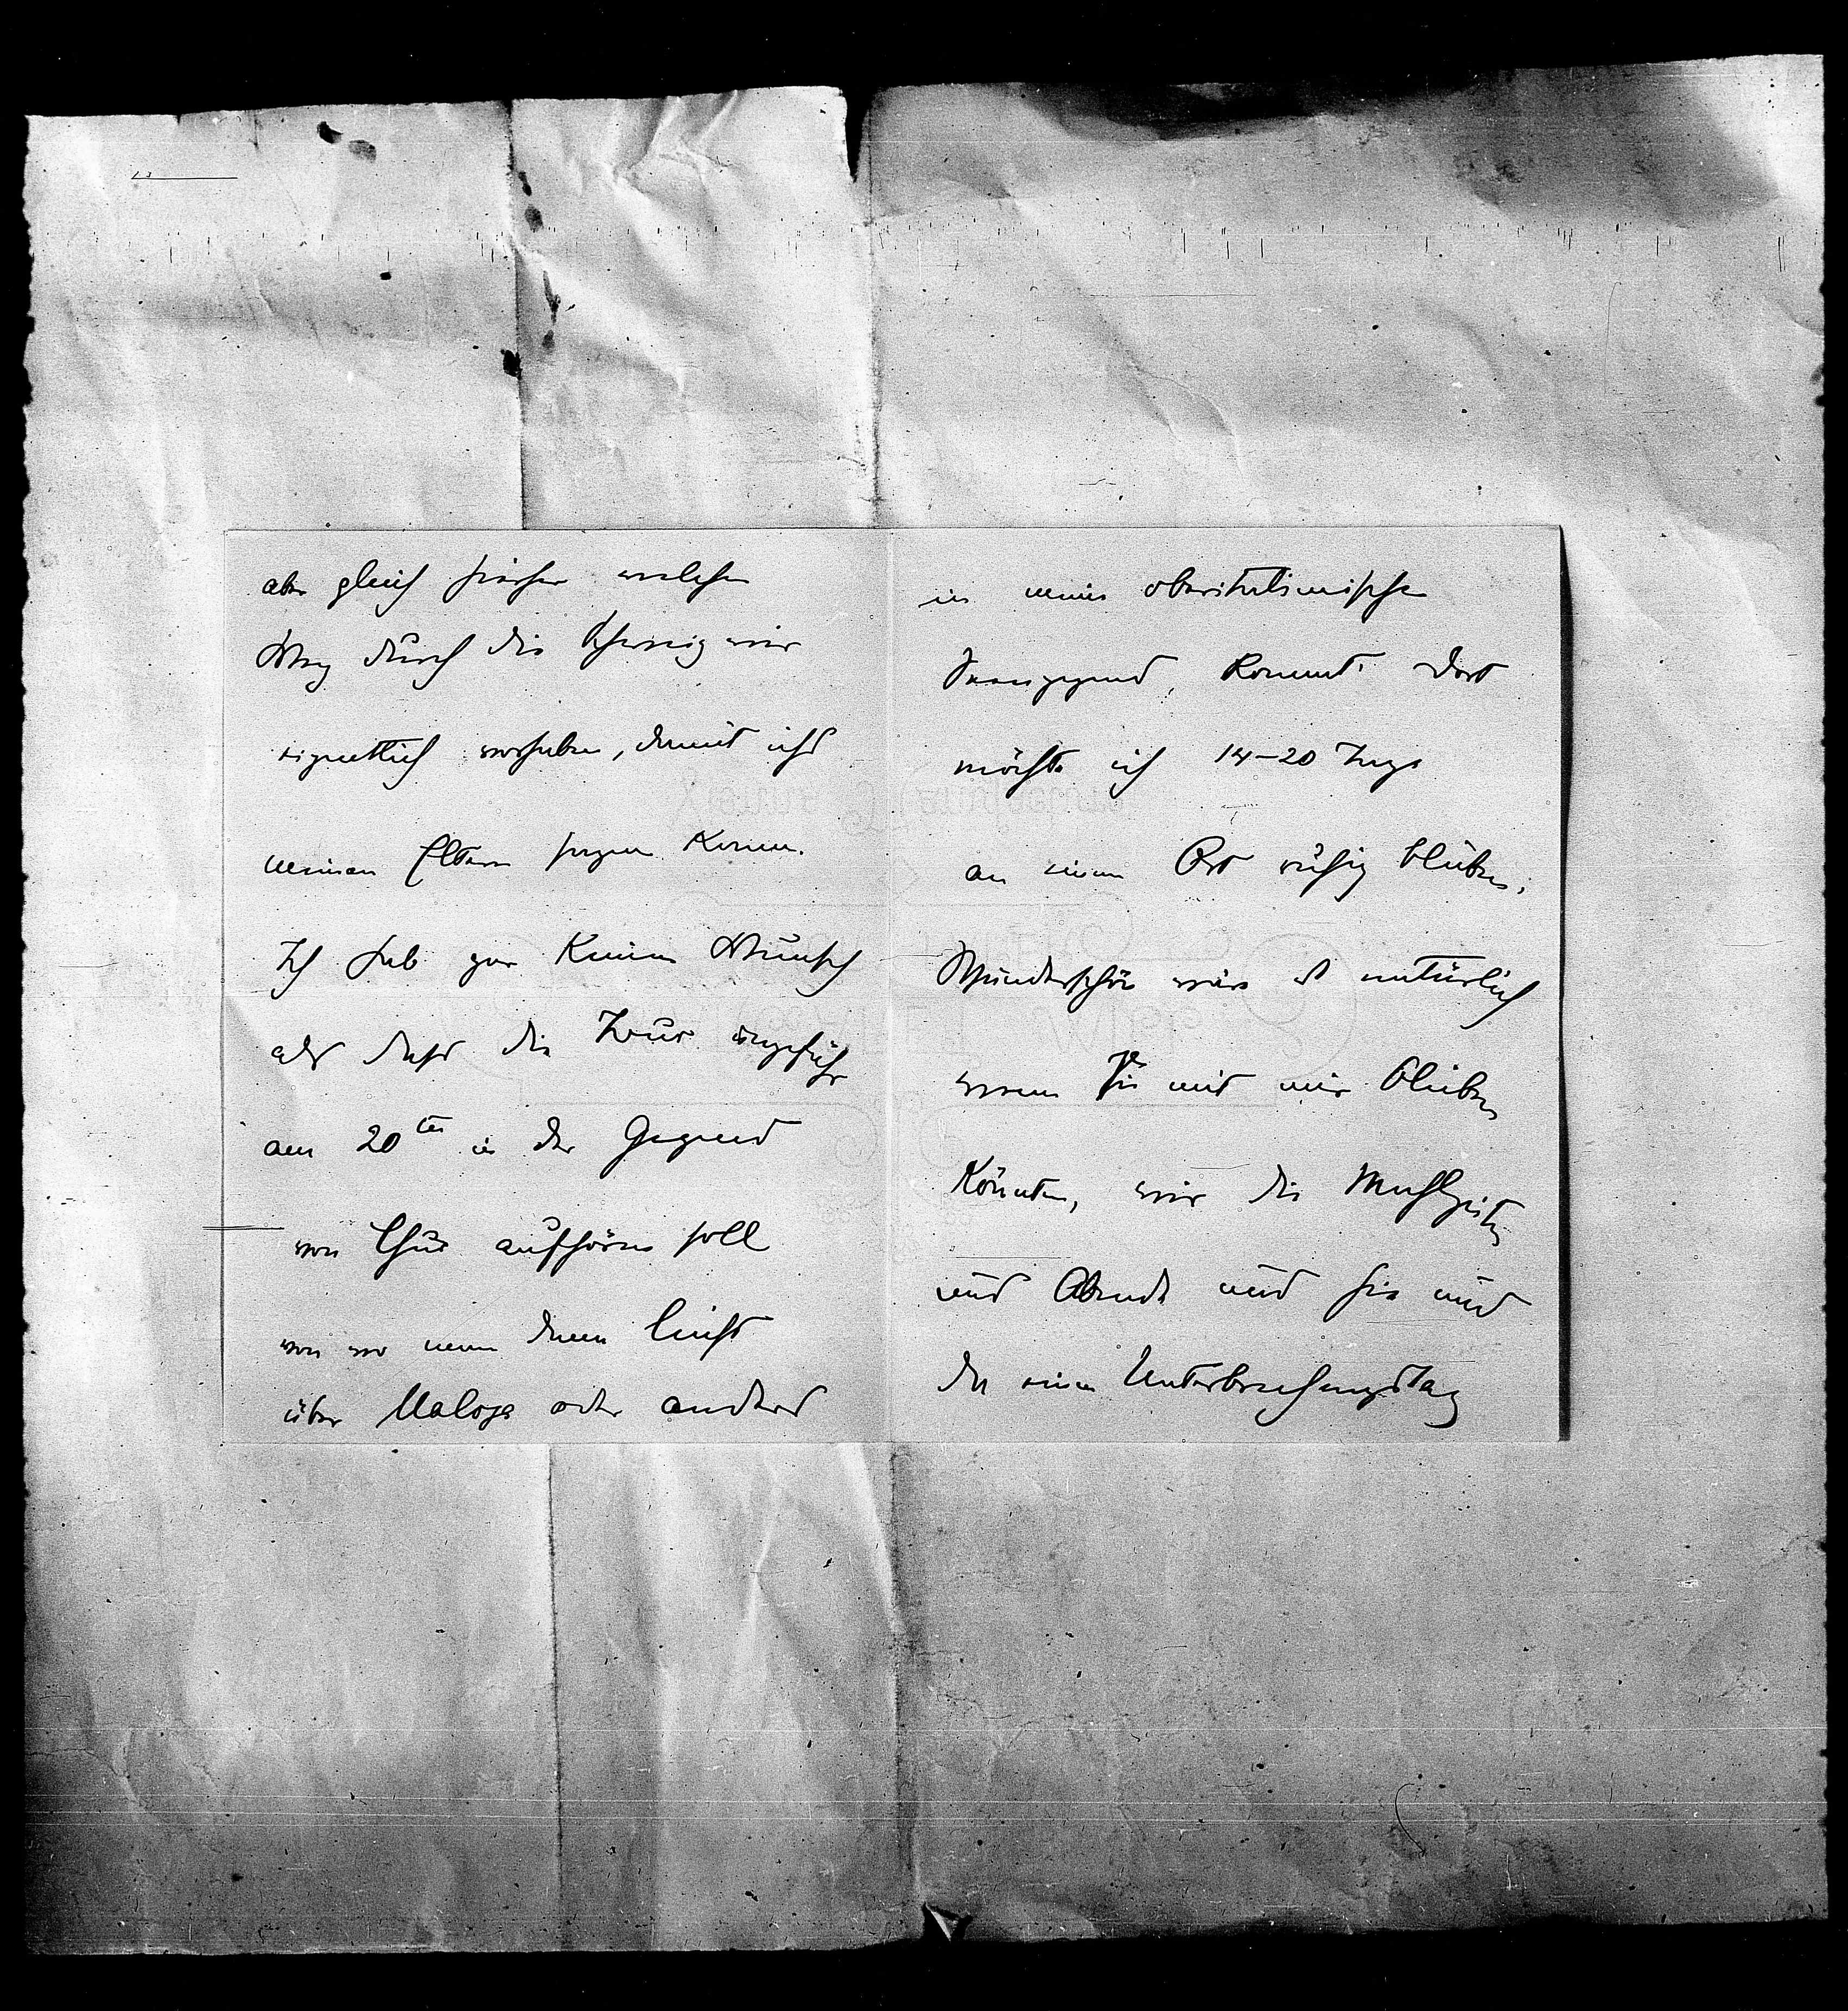 aber gleich hieher welchen
Weg durch die Schweiz wir
eigentlich vorhaben, damit ichs
meinen Eltern sagen kann.
Ich hab gar keinen Wunsch
als dass die Tour ungefähr
am 20ten in der Gegend
von Chur aufhören soll
von wo man dann leicht
über Maloja oder anders
in meine oberitalienische
Seengegend kommt. dort
möchte ich 14–20 Tage
an einem Ort ruhig bleiben,
Wunderschön wäre es natürlich
wenn Sie mit mir bleiben
könnten, wir die Mahlzeiten
und Abende und hie und
da einen Unterbrechungstag